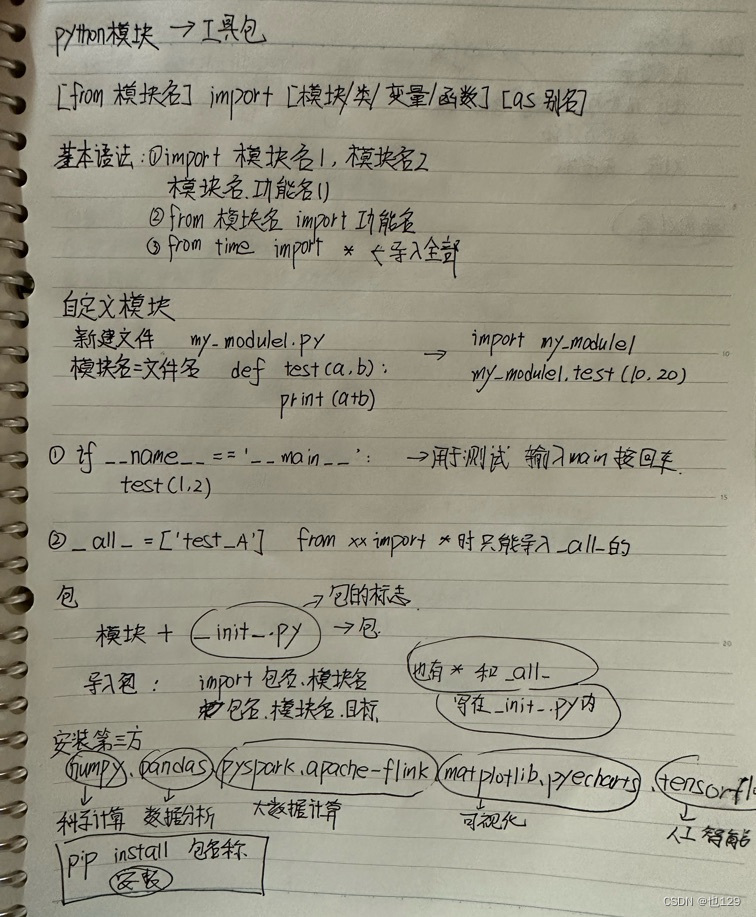 python模块 → 工具包
[from 模块名] import [模块/类/变量/函数] [as 别名]
基本语法:①import 模块名1, 模块名2
模块名.功能名()
②from 模块名 import 功能名
③from time import * ← 导入全部
自定义模块
新建文件 my_module1.py → import my_module1
模块名=文件名 def test(a,b): my_module1.test(10,20)
print(a+b)
① if __name__ == '__main__': → 用于测试 输入main 按回车.
test(1,2)
② _all_ = ['test_A'] from xx import * 时只能导入_all_的
包 → 包的标志
模块 + _init_.py → 包
导入包: import 包名.模块名 也有 * 和 _all_
包名.模块名.目标 写在_init_.py内
安装第三方
numpy. pandas. pyspark. apache-flink. matplotlib. pyecharts. tensorfl
科学计算 数据分析 大数据计算 可视化 人工智能
pip install 包名称
安装
CSDN @也129